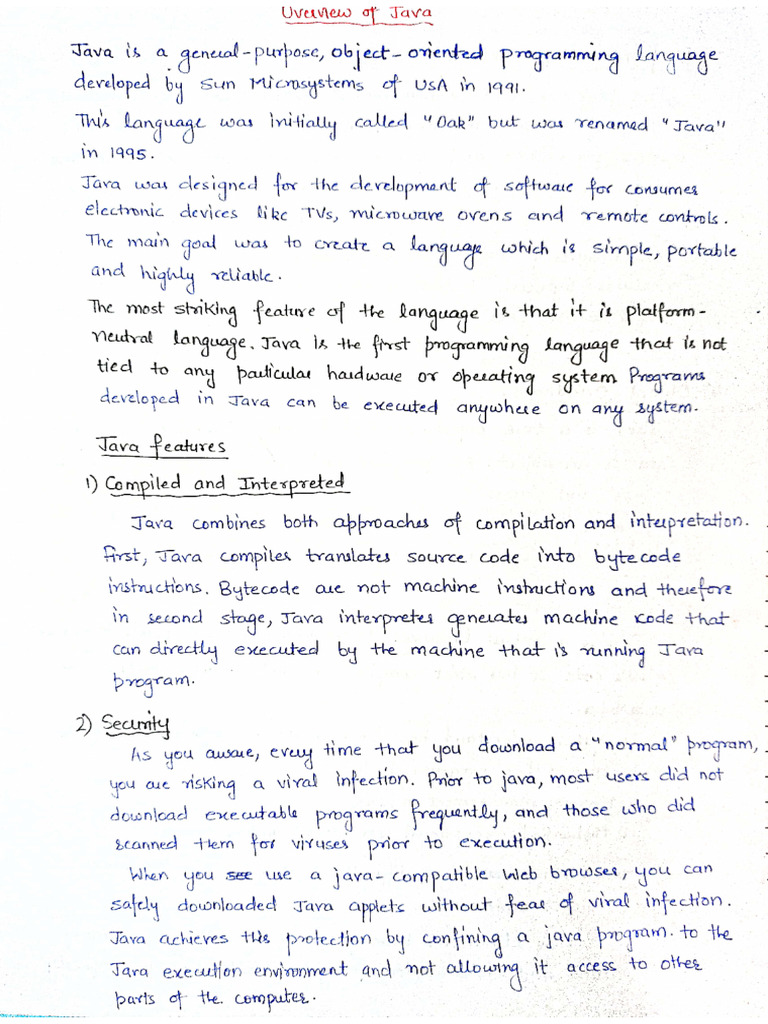 Overview of Java
Java is a general-purpose, object-oriented programming language
developed by Sun Microsystems of USA in 1991.
This language was initially called "Oak" but was renamed "Java"
in 1995.
Java was designed for the development of software for consumer
electronic devices like TVs, microware ovens and remote controls.
The main goal was to create a language which is simple, portable
and highly reliable.
The most striking feature of the language is that it is platform-
neutral language. Java is the first programming language that is not
tied to any particular hardware or operating system Programs
developed in Java can be executed anywhere on any system.
Java features
1) Compiled and Interpreted
Java combines both approaches of compilation and interpretation.
first, Java compiles translates source code into bytecode
instructions. Bytecode are not machine instructions and therefore
in second stage, Java interpreter generates machine code that
can directly executed by the machine that is running Java
program.
2) Security
As you aware, every time that you download a "normal" program,
you are risking a viral infection. Prior to java, most users did not
download executable programs frequently, and those who did
scanned them for viruses prior to execution.
When you use a java-compatible Web browser, you can
safely downloaded Java applets without fear of viral infection.
Java achieves this protection by confining a java program. to the
Java execution environment and not allowing it access to other
parts of the computer.